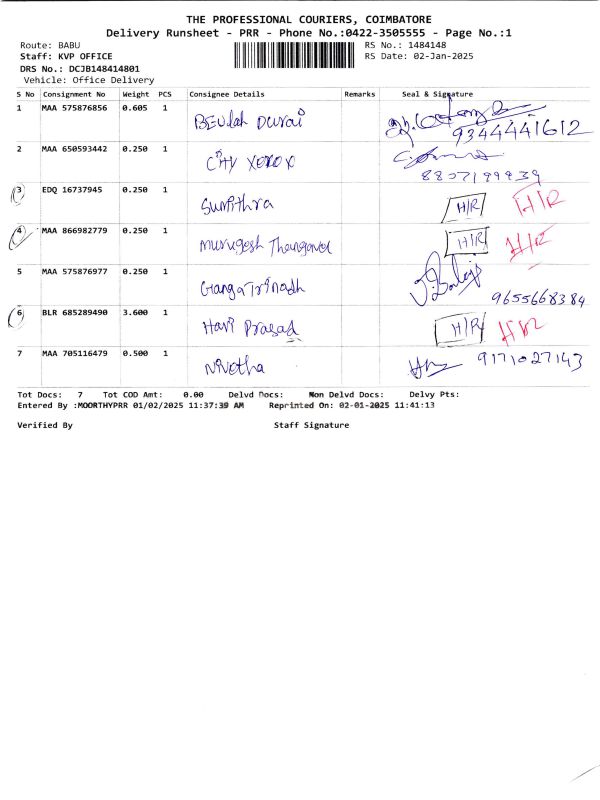 THE PROFESSIONAL COURIERS, COIMBATORE
Delivery Runsheet - PRR - Phone No.:0422-3505555 - Page No.:1
Route: BABU RS No.: 1484148
Staff: KVP OFFICE RS Date: 02-Jan-2025
DRS No.: DCJB148414801
Vehicle: Office Delivery
S No Consignment No Weight PCS Consignee Details Remarks Seal & Signature
1 MAA 575876856 0.605 1 BEulah Durai
9344441612
2 MAA 650593442 0.250 1 City XEROX
8807199939
3 EDQ 16737945 0.250 1 Sumithra H/R H/R
4 MAA 866982779 0.250 1 Murugesh Thangavel H/R H/R
5 MAA 575876977 0.250 1 GangaTrinadh
9655668384
6 BLR 685289490 3.600 1 Hari Prasad H/R H/R
7 MAA 705116479 0.500 1 Nivetha 9171027143
Tot Docs: 7 Tot COD Amt: 0.00 Delvd Docs: Non Delvd Docs: Delvy Pts:
Entered By :MOORTHYPRR 01/02/2025 11:37:39 AM Reprinted On: 02-01-2025 11:41:13
Verified By Staff Signature